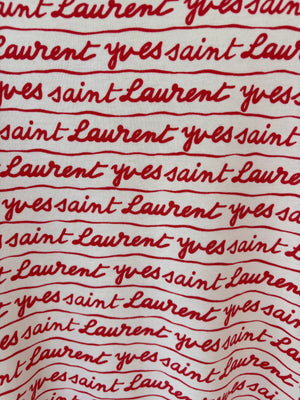 saint Laurent yves saint
Laurent yves saint Laurent
yves saint Laurent yves
saint Laurent yves saint
Laurent yves saint Laurent
yves saint Laurent yves
saint Laurent yves saint
Laurent yves saint Laurent
yves saint Laurent yves saint
yves saint Laurent yves saint
Laurent yves saint Laurent
yves saint Laurent yves
saint Laurent yves saint